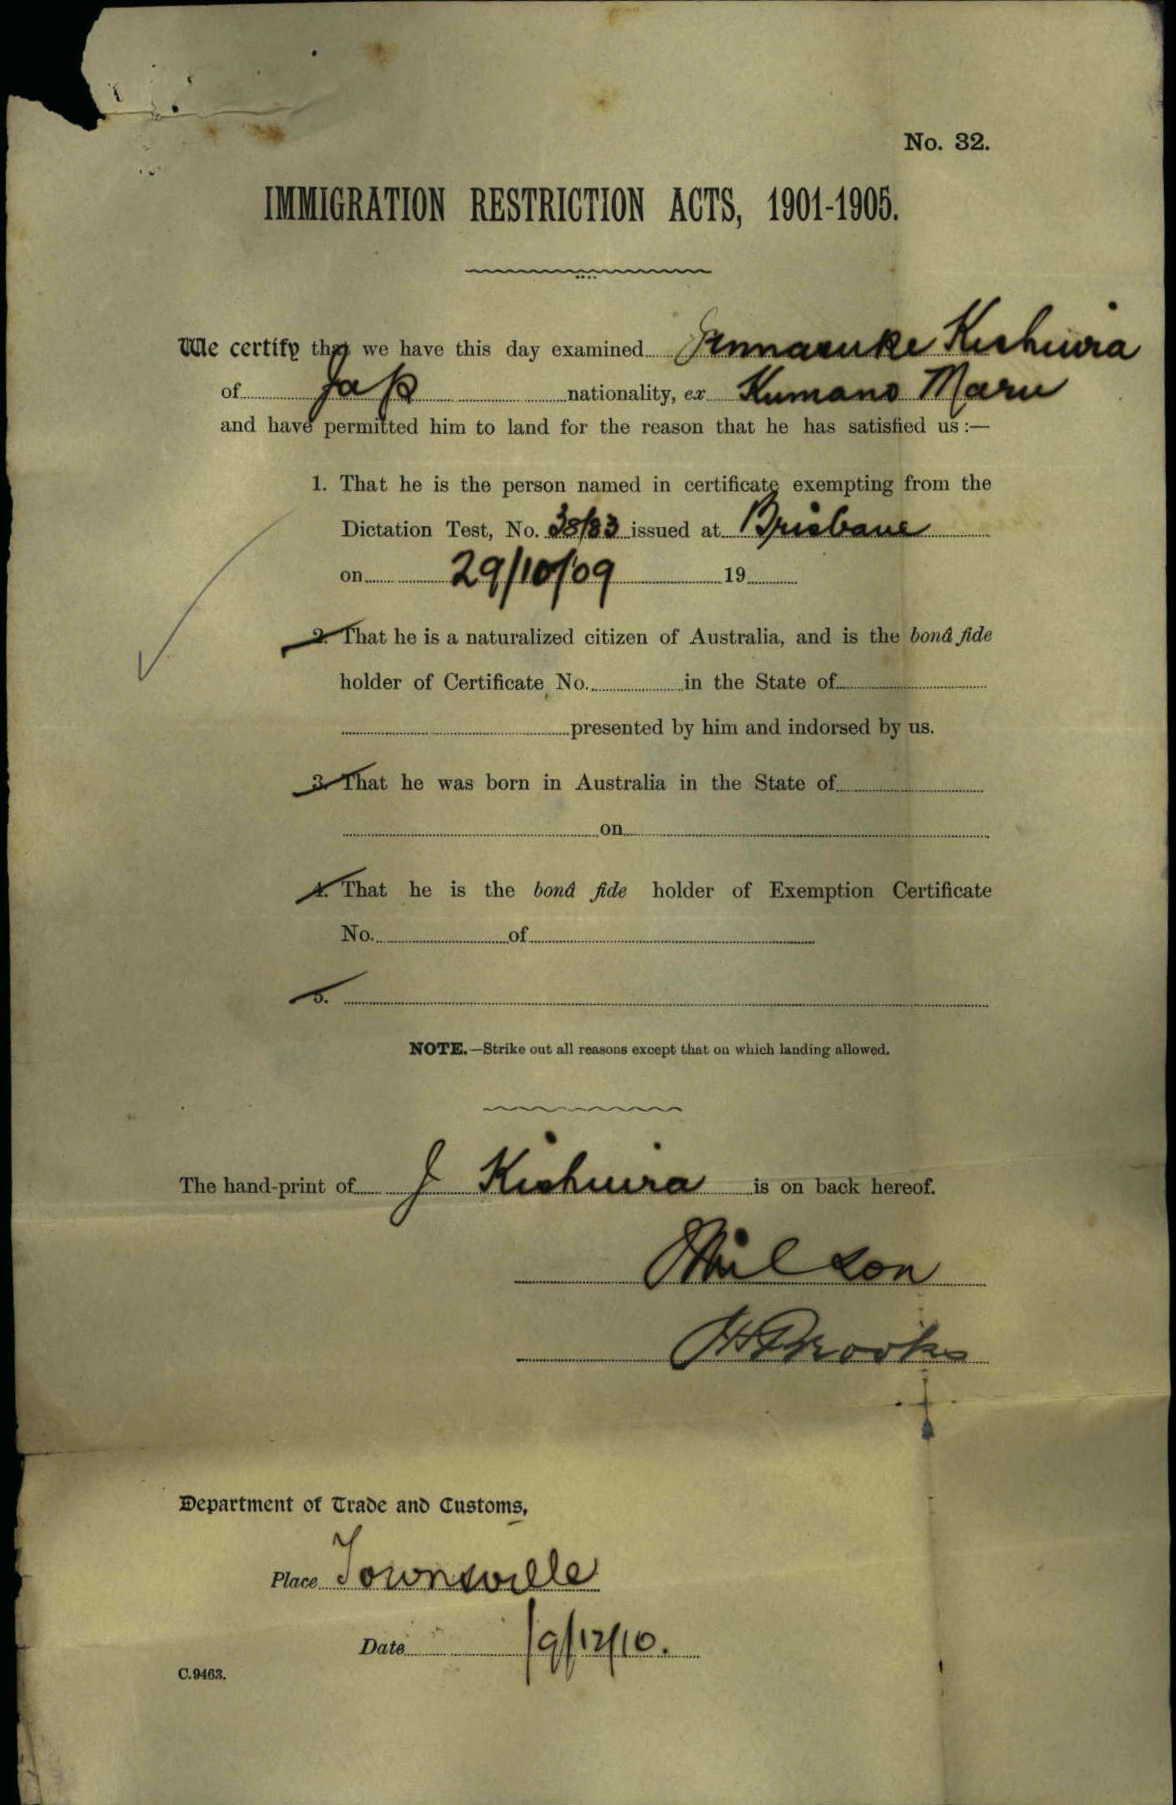 No. 32.
IMMIGRATION RESTRICTION ACTS, 1901-1905.
We certify that we have this day examined Kishuira
of Jap nationality, ex Kumano Maru
and have permitted him to land for the reason that he has satisfied us :—
1. That he is the person named in certificate exempting from the
Dictation Test, No. 38/83 issued at Brisbane
on 29/10/09 19
2. That he is a naturalized citizen of Australia, and is the bonâ fide
holder of Certificate No. in the State of
presented by him and indorsed by us.
3. That he was born in Australia in the State of
on
4. That he is the bonâ fide holder of Exemption Certificate
No. of
5.
NOTE.—Strike out all reasons except that on which landing allowed.
The hand-print of J Kishuira is on back hereof.
Milson
HBrooks
Department of Trade and Customs,
Place Townsville
Date 19/12/10.
C.9463.